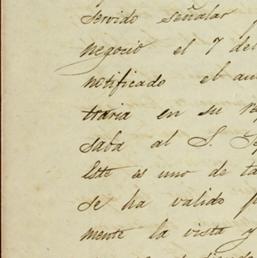 servido señalar
negocio el 7 del
notificado el au
traria en su re
saba al S. Se
Este es uno de ta
se ha valido p
mente la vista y